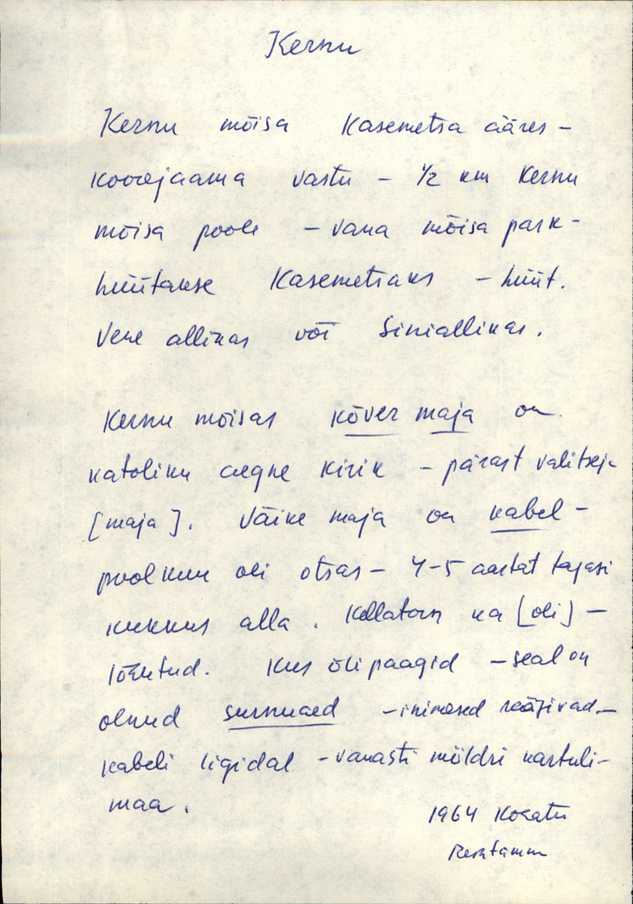 Kernu
Kernu mõisa Kasemetsa ääres -
koorejaama vastu - 1/2 km Kernu
mõisa poole - vana mõisa park -
hüütakse Kasemetsaks - hüüt.
Vene allikas või Siniallikas.
Kernu mõisas kõver maja on
katoliku aegne kirik - pärast valitseja
[maja]. Väike maja on kabel -
poolkuu oli otsas - 4-5 aastat tagasi
kukkus alla. Kellatorn ka [oli] -
lõhutud. Kus õlipaagid - seal on
olnud surnuaed - inimesed rääkivad -
kabeli ligidal - vanasti möldri kartuli-
maa.
1964 Kogatu